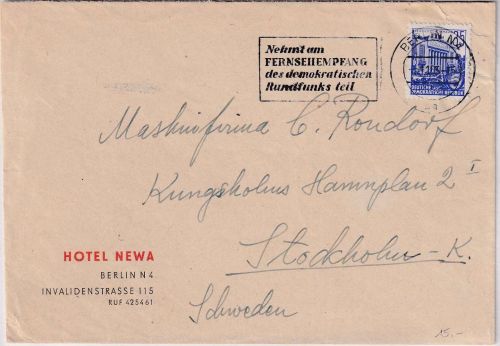 Nehmt am
FERNSEHEMPFANG
des demokratischen
Rundfunks teil
BERLIN N4
35
DEUTSCHE
DEMOKRATISCHE REPUBLIK
Maskinfirma C. Rondorf
Kungsholms Hamnplan 2 I
Stockholm-K.
Schweden
HOTEL NEWA
BERLIN N 4
INVALIDENSTRASSE 115
RUF 425461
15.-